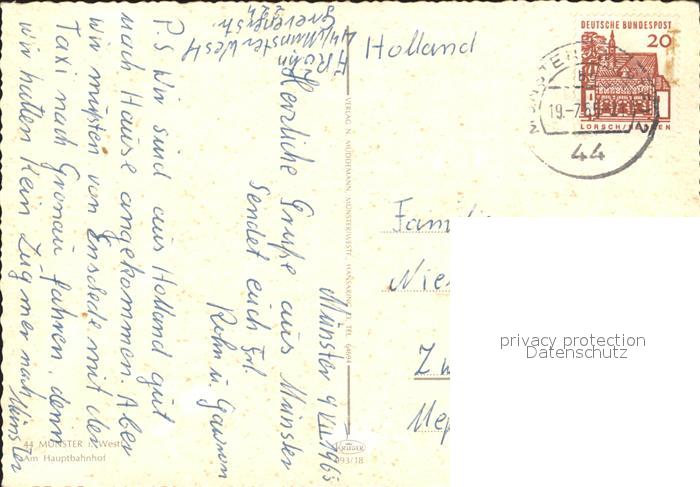 Holland
DEUTSCHE BUNDESPOST
20
LORSCH/HESSEN
19.-7.65
44
Familie
Nie
Zw
Mep
privacy protection
Datenschutz
Münster 9 VII 1965
Herzliche Grüße aus Münster
Sendet euch Frl.
Rohn u.
P.S Wir sind aus Holland gut
nach Hause angekommen. Aber
wir müßten von Enschede mit der
Taxi nach Gronau fahren, denn
wir hatten kein Zug mer nach Münster
A Rohn
44 Münster West
Grevenerstr.
VERLAG N. MÜDDEMANN, MÜNSTER/WESTF., HANSARING 61, TEL. 64694
KRÜGER
993/18
44 MÜNSTER i. Westf.
Am Hauptbahnhof